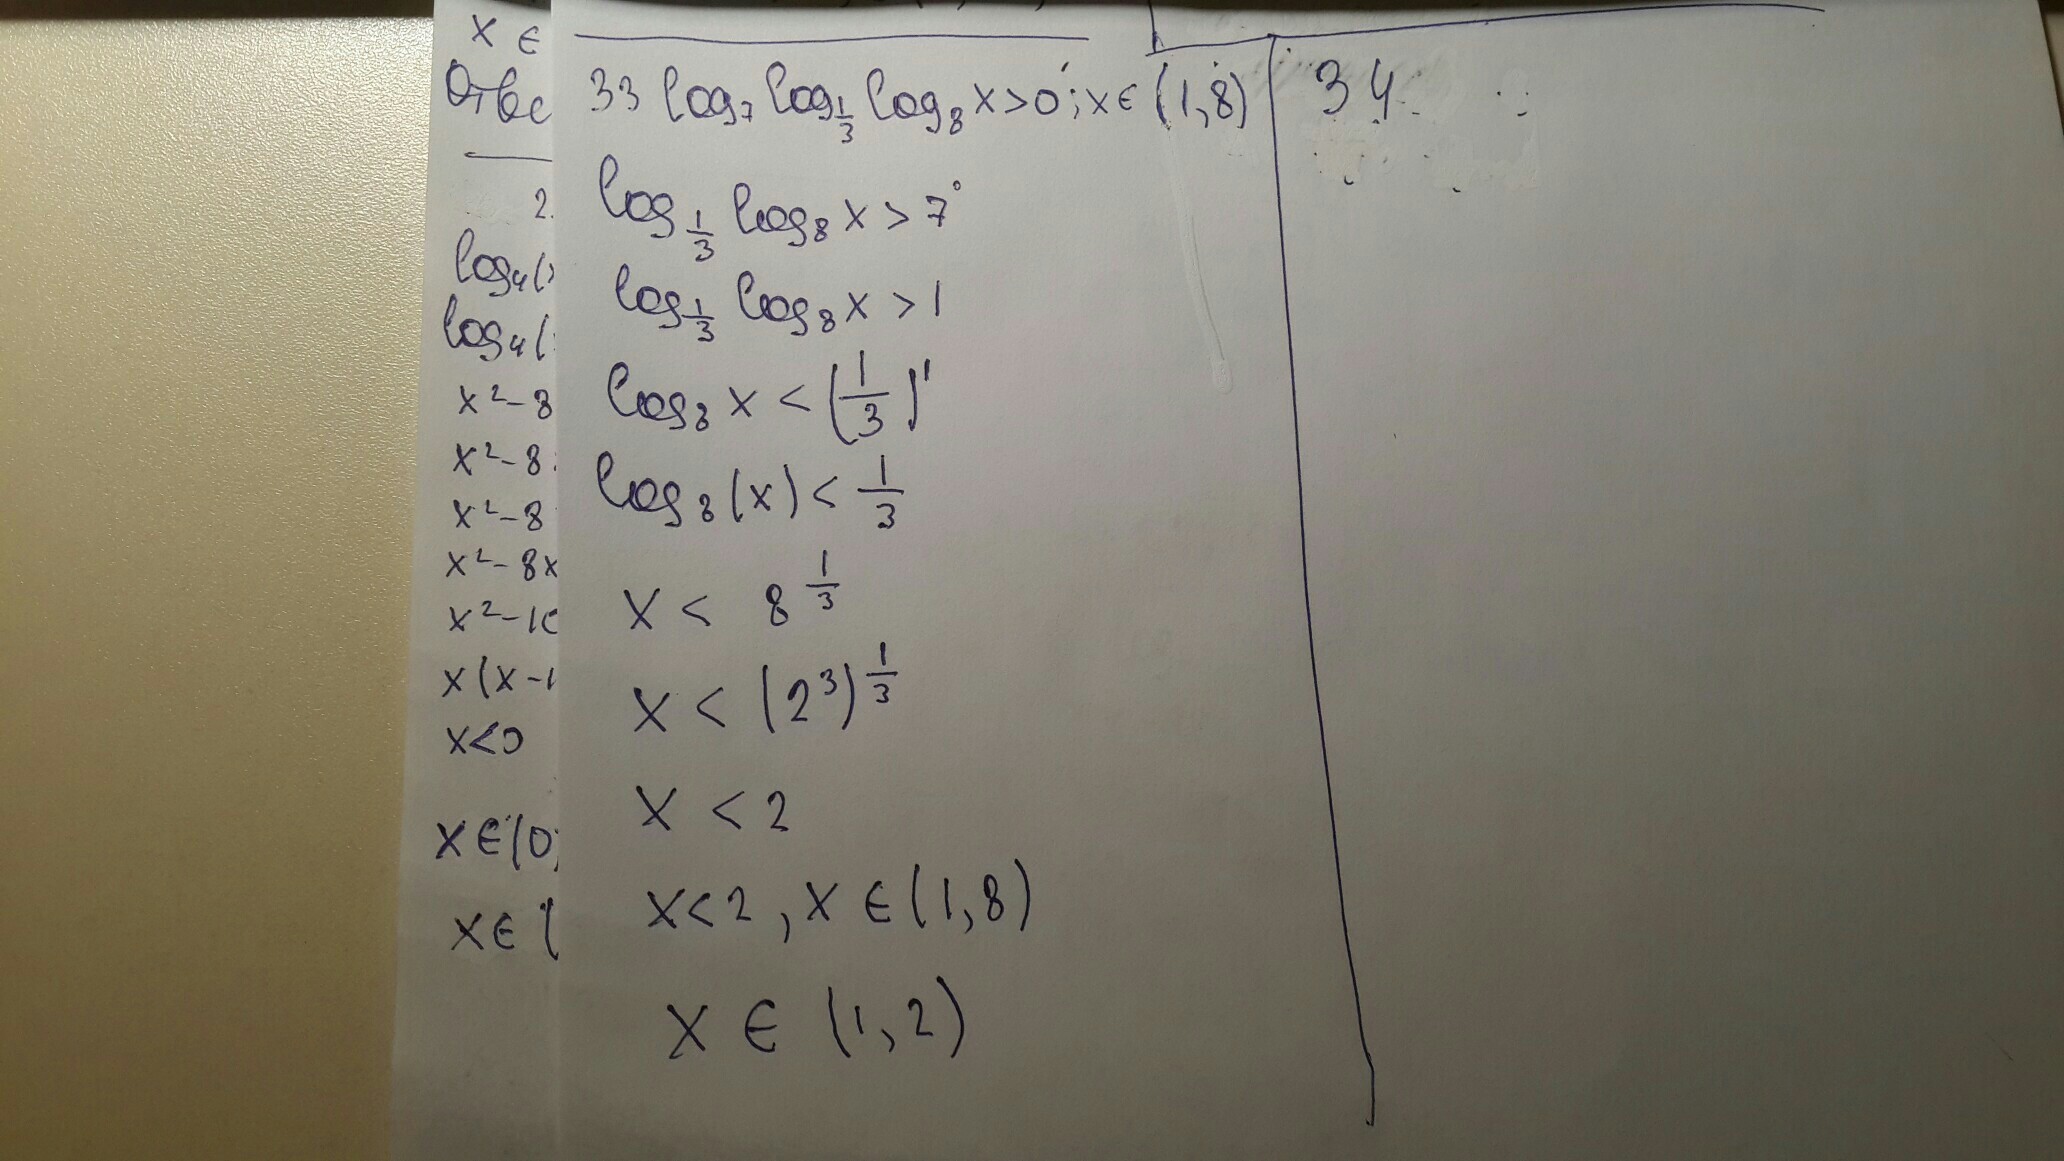 x ∈
Отве
2.
log₄(x
log₄(
x²-8
x²-8
x²-8
x²-8x
x²-10
x(x-1
x<0
x∈(0;
x∈(
33 log₇ log_{1/3} log₈ x>0; x∈(1,8)
log_{1/3} log₈ x > 7⁰
log_{1/3} log₈ x > 1
log₈ x < (1/3)¹
log₈(x) < 1/3
x < 8^{1/3}
x < (2³)^{1/3}
x < 2
x<2, x ∈(1,8)
x ∈ (1,2)
34